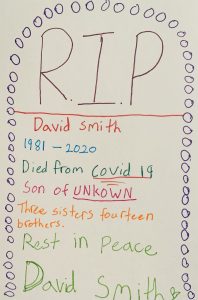 R.I.P
David Smith
1981 - 2020
Died from Covid 19
Son of UNKOWN
Three sisters fourteen
brothers.
Rest in Peace
David Smith